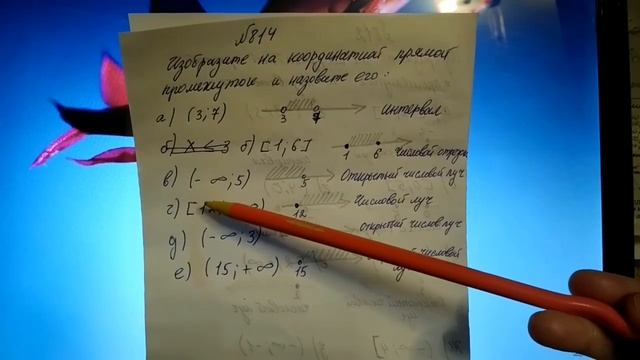 №814
Изобразите на координатной прямой
промежуток и назовите его:
а) (3;7) 3 7 интервал
б) x < 3 б) [1;6] 1 6 числовой отрезок
в) (-∞;5) 5 Открытый числовой луч
г) [1 12 Числовой луч
д) (-∞;3) открытый числов луч
е) (15;+∞) 15 числовой
луч